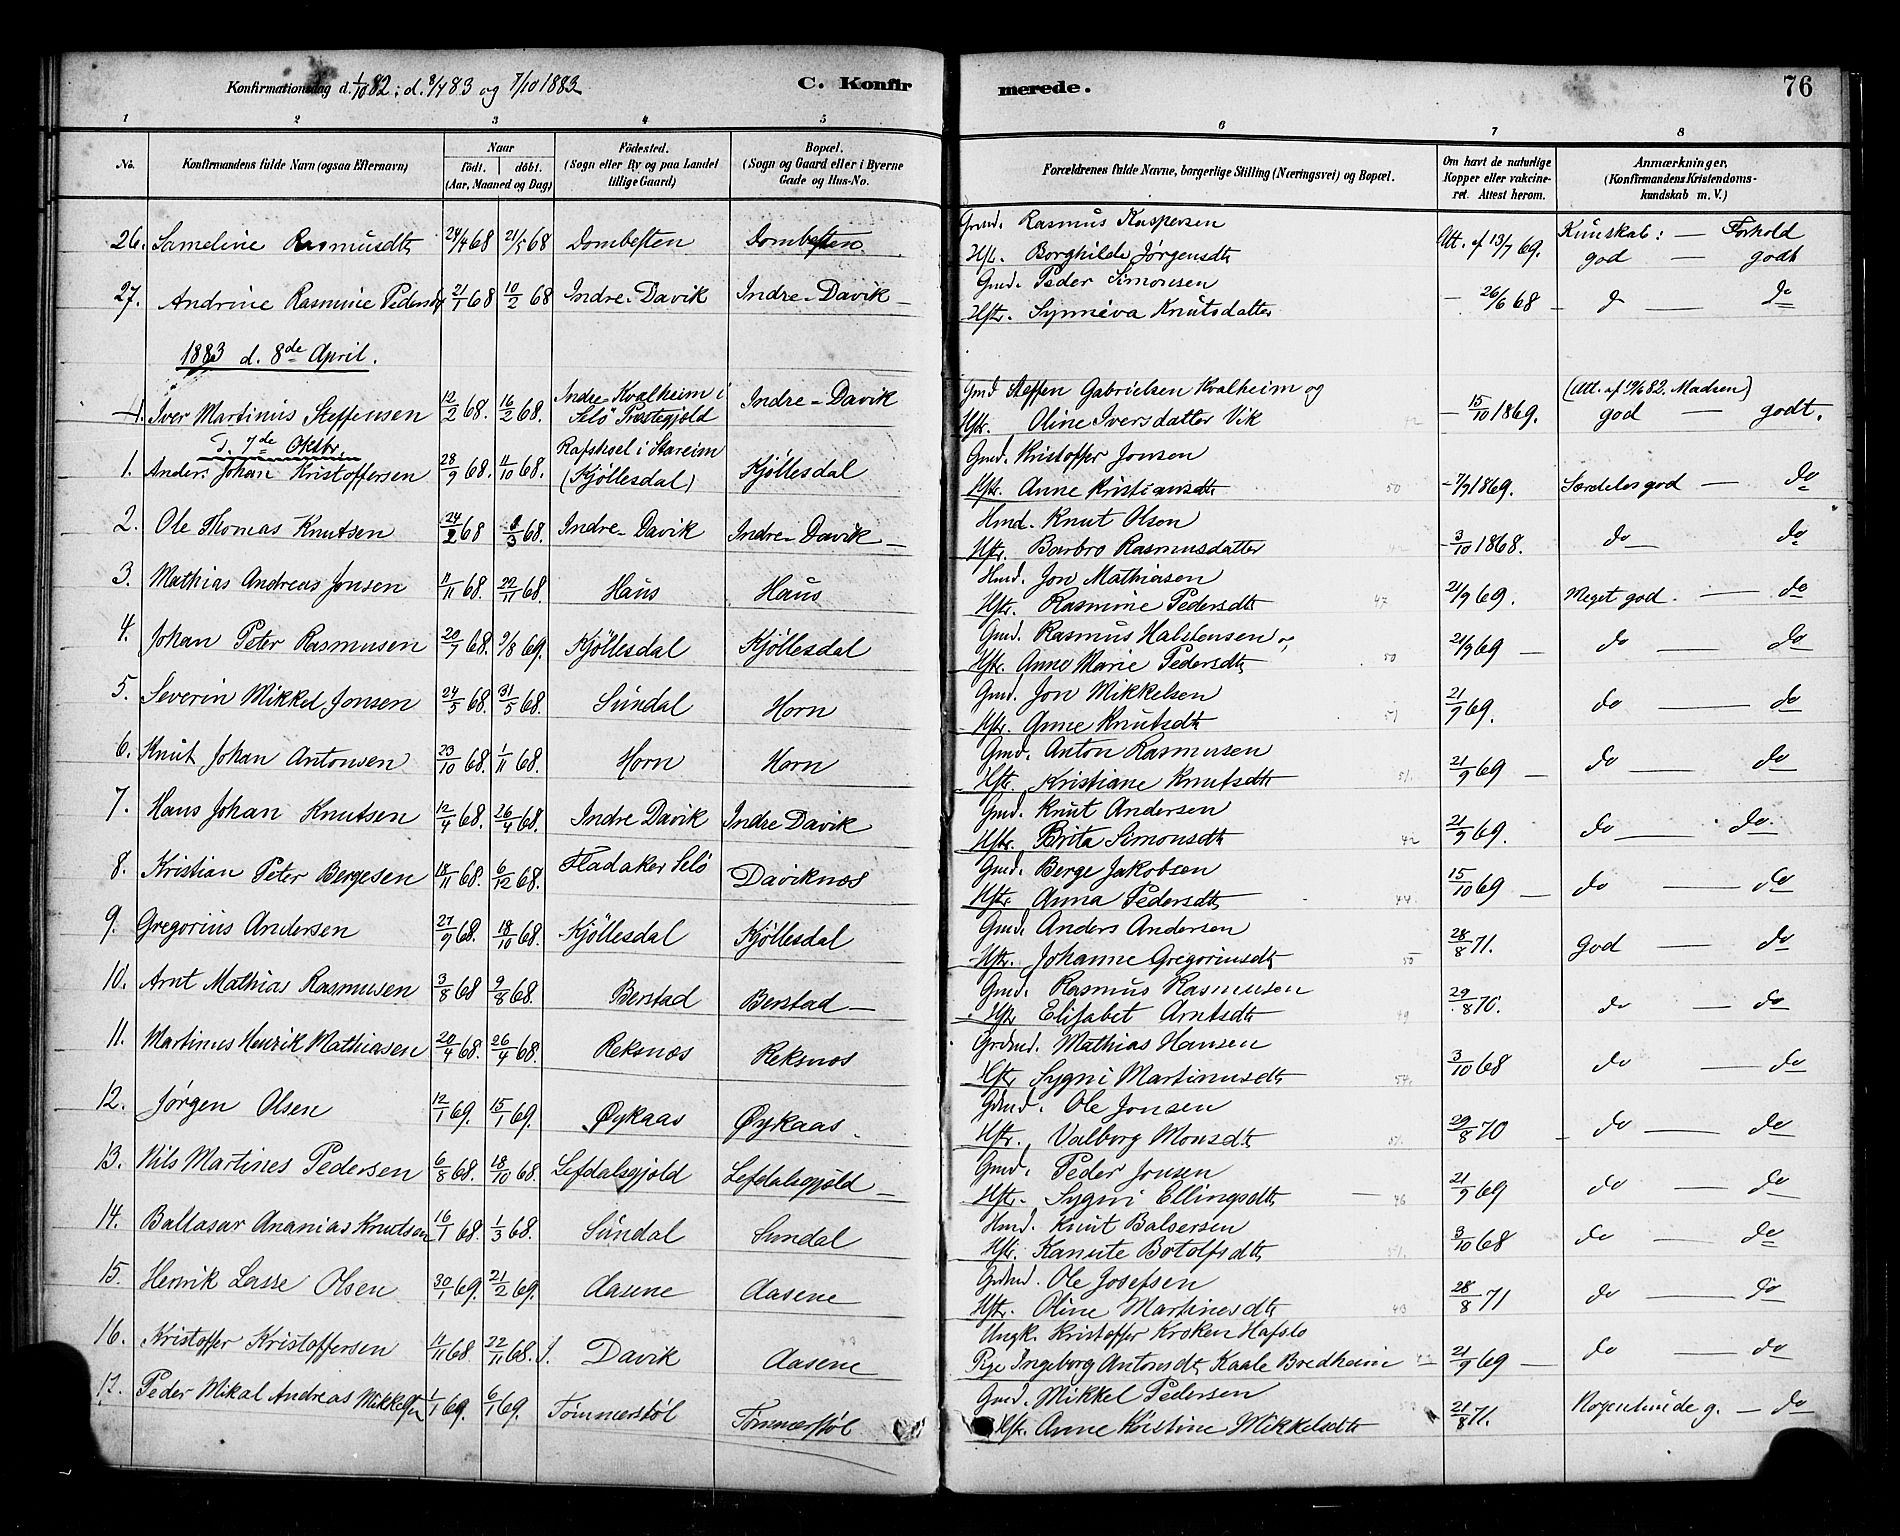 Konfirmationsdag d. 1/10 82; d. 8/4 83 og 7/10 1883
C. Konfirmerede.
76
1 2 3 4 5 6 7 8
No. Konfirmandens fulde Navn (ogsaa Efternavn) Naar födt. döbt. (Aar, Maaned og Dag) Födested. (Sogn eller By og paa Landet tillige Gaard) Bopæl. (Sogn og Gaard eller i Byerne Gade og Hus-No. Forældrenes fulde Navne, borgerlige Stilling (Næringsvei) og Bopæl. Om havt de naturlige Kopper eller vakcineret. Attest herom. Anmærkninger, (Konfirmandens Kristendomskundskab m. V.)
26. Sameline Rasmusdtr 24/4 68 21/5 68 Dombesten Dombesten Grmd. Rasmus Kaspersen Hstr. Borghilde Jørgensdtr Att. af 13/7 69. Kunskab: god — Forhold godt
27. Andrine Rasmine Pedersdtr 21/1 68 10/2 68 Indre-Davik Indre-Davik — Gmd. Peder Simonsen Hstr. Synneva Knutsdatter — 26/6 68 — do — do
1883 d. 8de April.
1. Iver Martinus Steffensen 12/2 68. 16/2 68. Indre-Kvalheim i Selö Præstegjeld Indre-Davik Gmd Steffen Gabrielsen Kvalheim og Hstr. Oline Iversdatter Vik — 15/10 1869. (Att. af 19/6 82. Madsen) god — godt.
D. 7de Oktbr.
1. Anders Johan Kristoffersen 28/9 68. 11/10 68. i Stareim (Kjöllesdal) Kjöllesdal Gmd. Kristoffer Jonsen Hstr. Anne Kristiansdtr 50 — 7/9 1869. Særdeles god — do
2. Ole Thomas Knutsen 24/2 68 1/3 68. Indre-Davik Indre-Davik — Hmd. Knut Olson Hstr. Barbro Rasmusdatter 42 — 3/10 1868. do do
3. Mathias Andreas Jonsen 11/11 68. 22/11 68. Haus Haus Hmd. Jon Mathiasen Hstr. Rasmine Pedersdtr 47 21/9 69. Meget god. — do
4. Johan Peter Rasmusen 20/7 68. 9/8 69. Kjöllesdal Kjöllesdal Gmd. Rasmus Halstensen og Hstr. Anne Marie Pedersdtr 50 21/9 69 — do — do
5. Severin Mikkel Jonsen 24/5 68. 31/5 68. Sundal Horn Gmd. Jon Mikkelsen Hstr. Anne Knutsdtr 51 21/9 69. do — do
6. Knut Johan Antonsen 23/10 68. 1/11 68. Horn Horn Gmd. Anton Rasmusen Hstr. Kristiane Knutsdtr 51. 21/9 69 — do — do
7. Hans Johan Knutsen 12/4 68. 26/4 68. Indre Davik Indre Davik Gmd. Knut Andersen Hstr. Brita Simonsdtr 42 21/9 69. do — do.
8. Kristian Peter Bergesen 18/11 68. 6/12 68. Fladaker Selö Daviknes Gmd. Berge Jakobsen Hstr. Anna Pedersdtr 44. 15/10 69 — do — do
9. Gregorius Andersen 27/9 68. 18/10 68. Kjöllesdal Kjöllesdal Gmd. Anders Andersen Hstr. Johanne Gregoriusdtr 50 28/8 71. God — do
10. Arnt Mathias Rasmusen 3/8 68 9/8 68. Berstad Berstad — Gmd. Rasmus Rasmusen Hstr Elisabet Arntsdtr 49 29/8 70. do — do
11. Martinus Henrik Mathiasen 20/4 68. 26/4 68. Reksnes Reksnes Grdmd. Mathias Hansen Hstr Sygni Martinusdtr 54. 3/10 68 do — do
12. Jørgen Olsen 12/1 69. 15/1 69. Øykaas Øykaas. Gdmd. Ole Jonsen Hstr. Valborg Monsdtr 51. 29/8 70 — do — do
13. Nils Martines Pedersen 6/8 68. 18/10 68. Lefdalsgjeld Lefdalsgjeld — Gmd. Peder Jonsen Hstr. Sygni Ellingsdtr — 46 21/9 69 do — do
14. Baltasar Ananias Knutsen 16/1 68. 1/3 68. Sundal Sundal Hmd. Knut Balsersen Hstr. Kanute Botolfsdtr 51. 3/10 68 do — do
15. Henrik Lasse Olsen 30/1 69. 21/2 69. Aasene Aasene Grdmd. Ole Josefsen Hstr. Oline Martinesdtr 43 28/8 71 do — do
16. Kristoffer Kristoffersen 11/11 68 22/11 68. I. Davik Aasene Ungk. Kristoffer Kroken Hafslo Pige Ingeborg Antonsdtr Kaale Bredheim 21/9 69 — do — do
17. Peder Mikal Andreas Mikkelsen 1/1 69. 6/1 69. Tömmerstöl Tömmerstöl Gmd. Mikkel Pedersen Hstr. Anne Kristine Mikkelsdtr 21/8 71. Nogenlunde g. — do